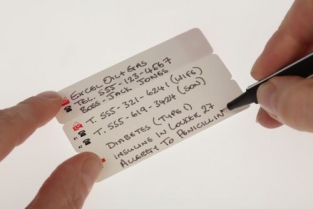 EXCEL OIL + GAS
TEL. 555-123-4567
BOSS - JACK JONES
T. 555-321-6241 (WIFE)
" T. 555-619-3424 (SON)
DIABETES (TYPE 1)
INSULINE IN LOCKER 27
ALLERGY TO PENICILLIN